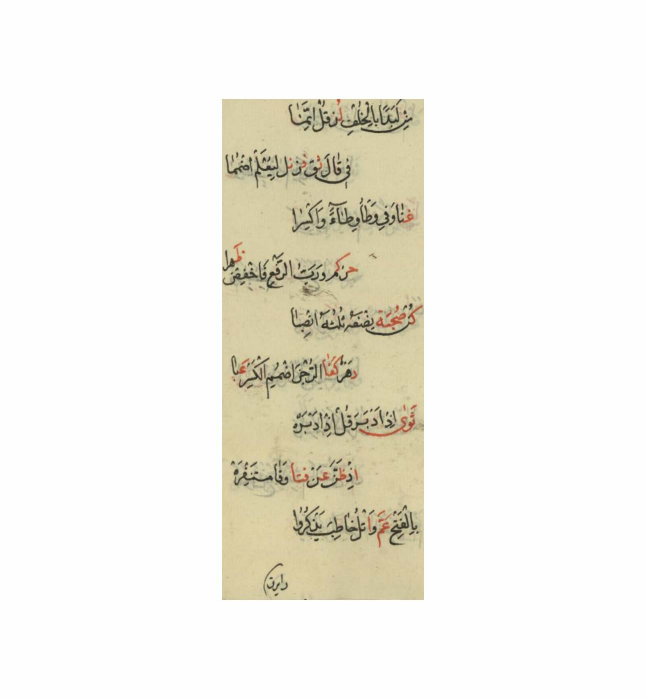 مِن لُبَدًا بِالخُلفِ لُز قُل اِنَّمَا
فِي قَالَ ثق فز نل لِيُعْلَمُ اضمُمَا
غنًا وَفِي وَطْأ وِطَاءً وَاكْسِرَا
حز كم وَرَبُّ الرَّفعِ فَاخْفِضْ ظهرا
كُن صُحْبَة نِصفَهُ ثُلْثَهُ انصِبَا
دَهْرًا كفَا الرُّجْزَ اضْمُمِ الكَسْرَ عبا
ثَوَى اِذا دَبَرَ قُل اِذْ اَدْبَرَهْ
اِذْ ظَنَّ عَنْ فتا وَفَا مستَنفِرَهْ
بِالْفَتْحِ عَمَّ وَاتْلُ خَاطِبْ يَذْكُرُوا